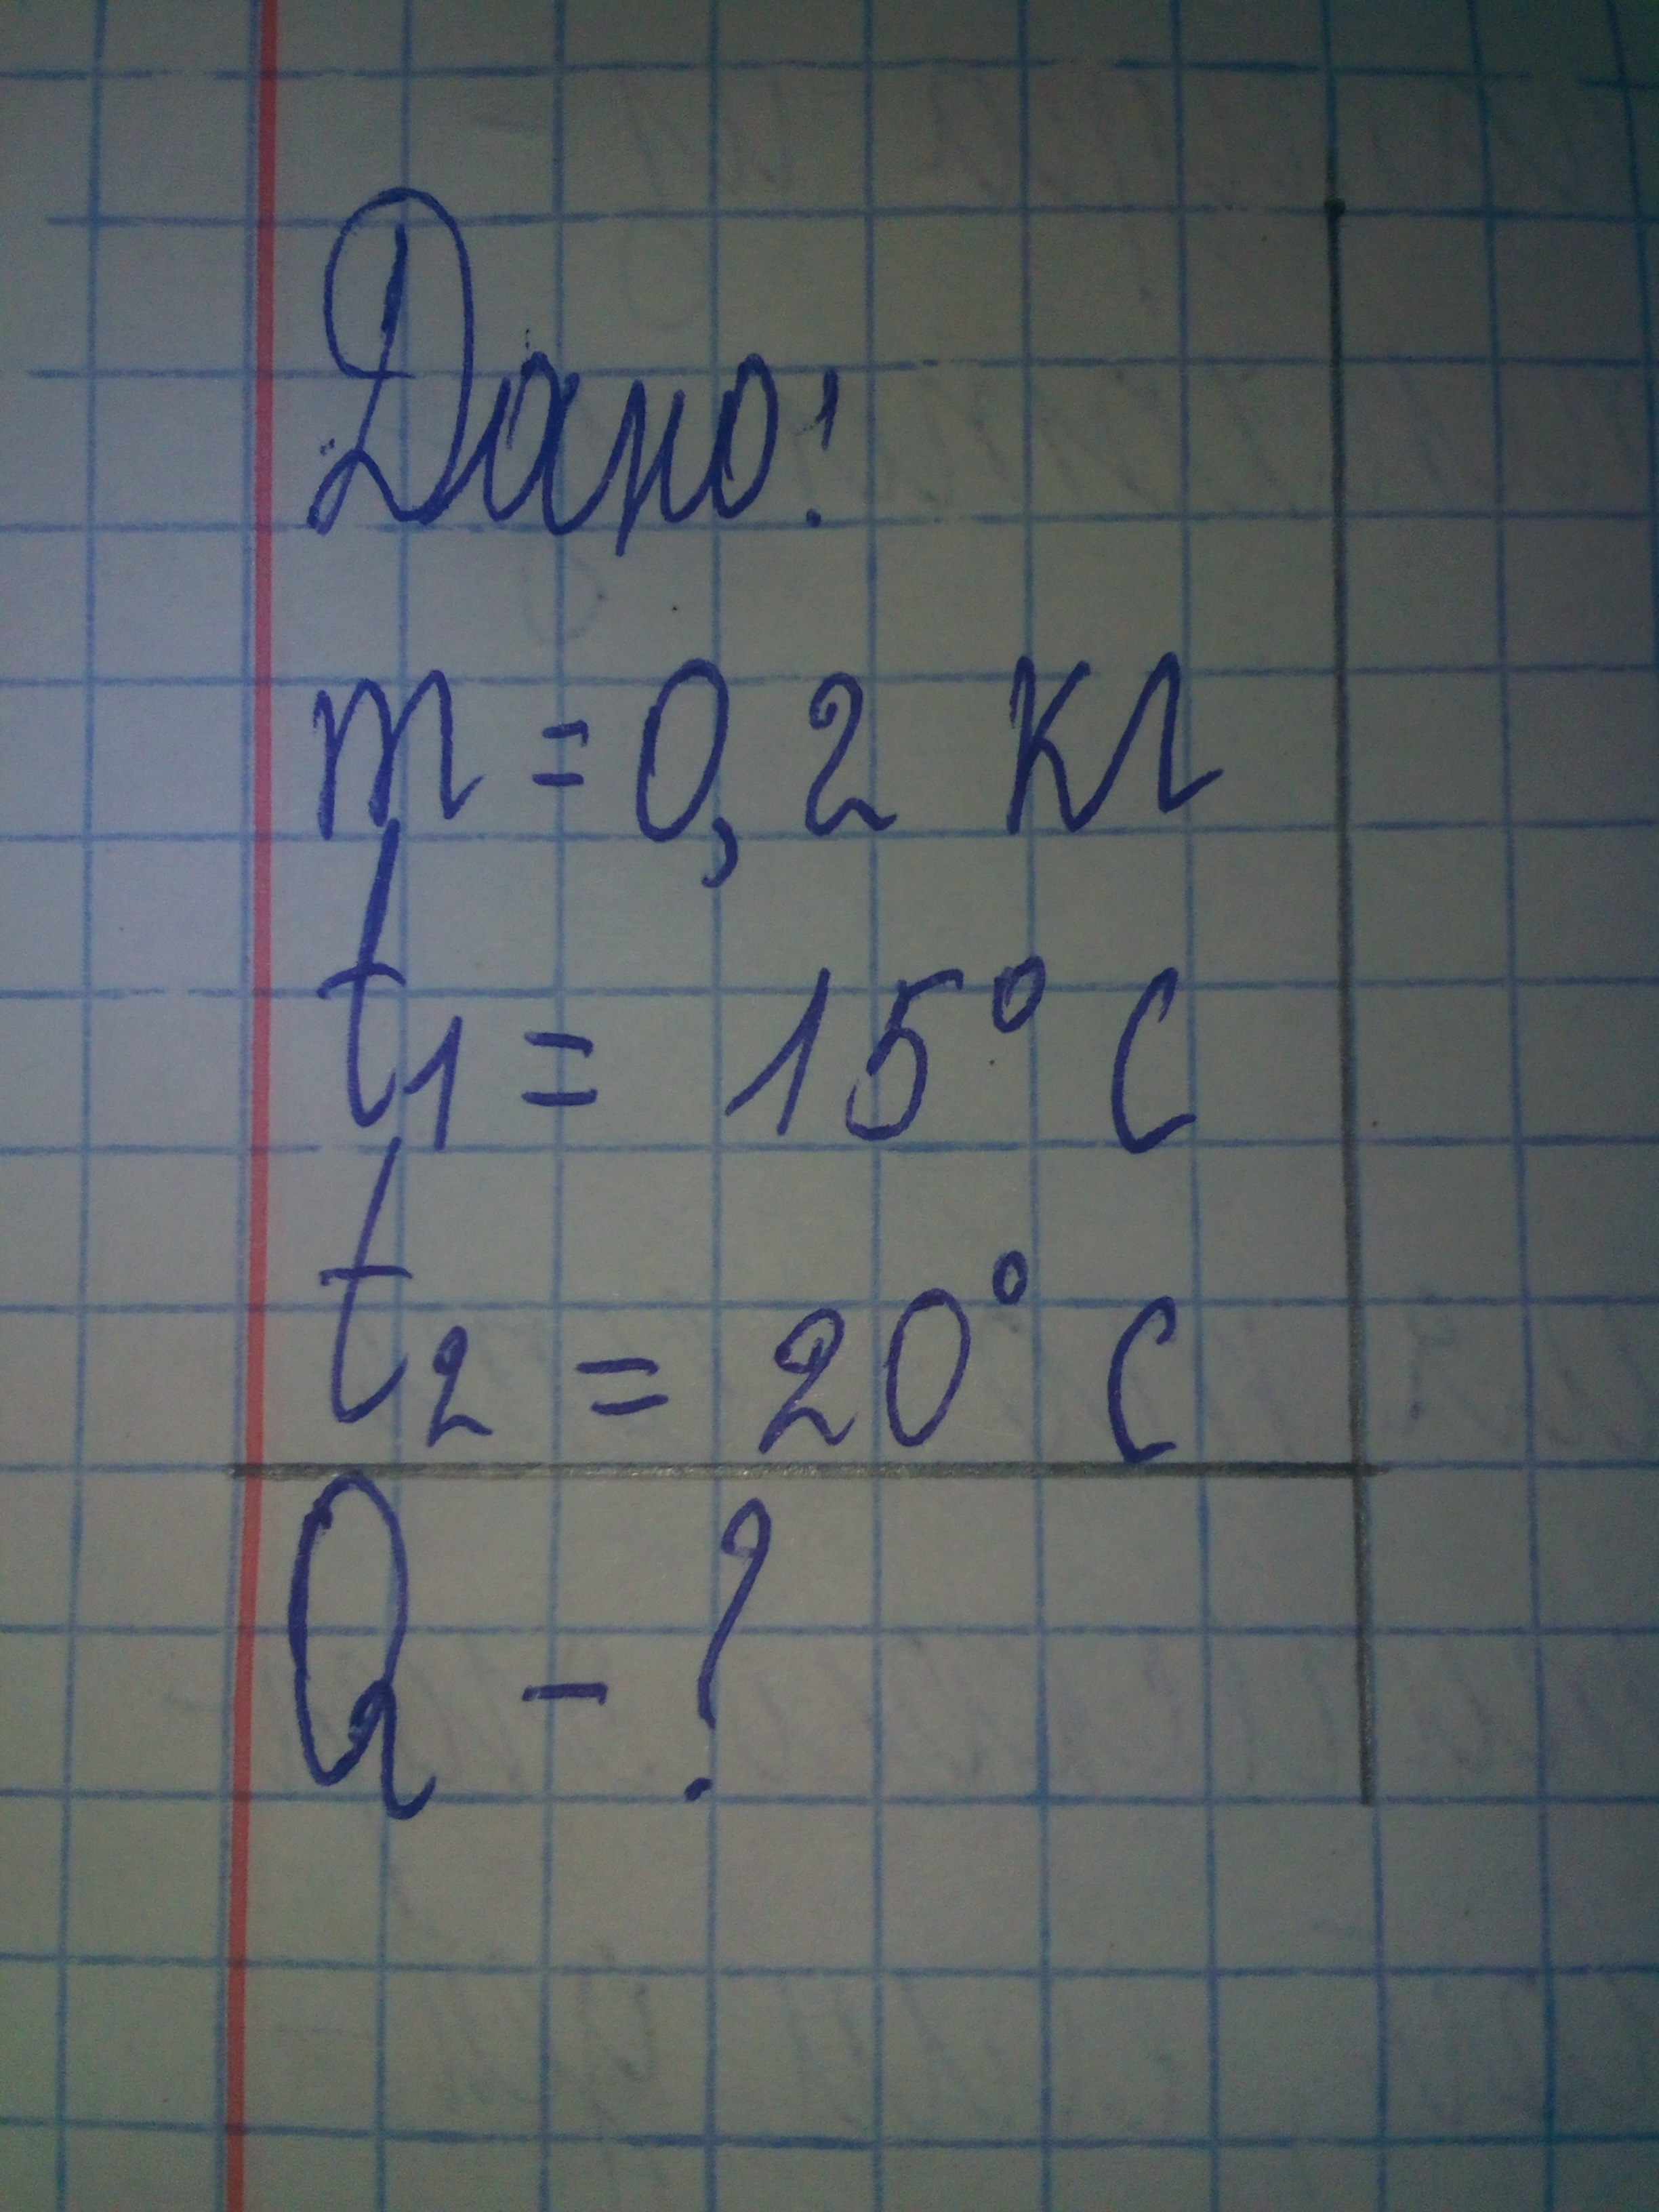 Дано:
m = 0,2 кг
t₁ = 15° C
t₂ = 20° C
Q - ?